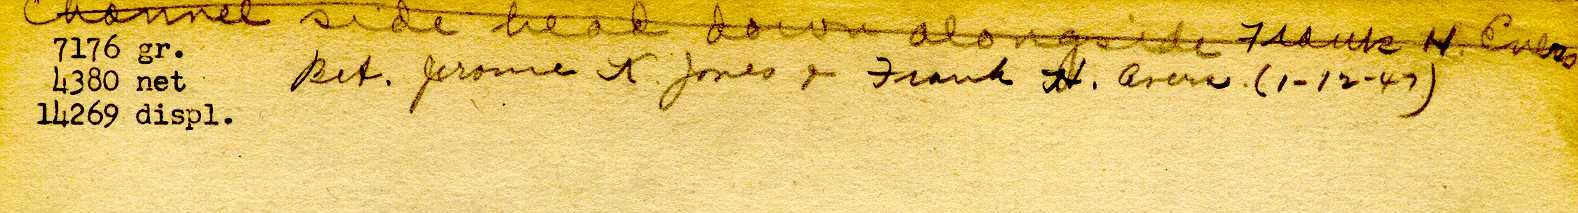 Channel side head down alongside Frank H. Evers
7176 gr.
4380 net Bet. Jerome K. Jones & Frank H. Evers (1-12-47)
14269 displ.